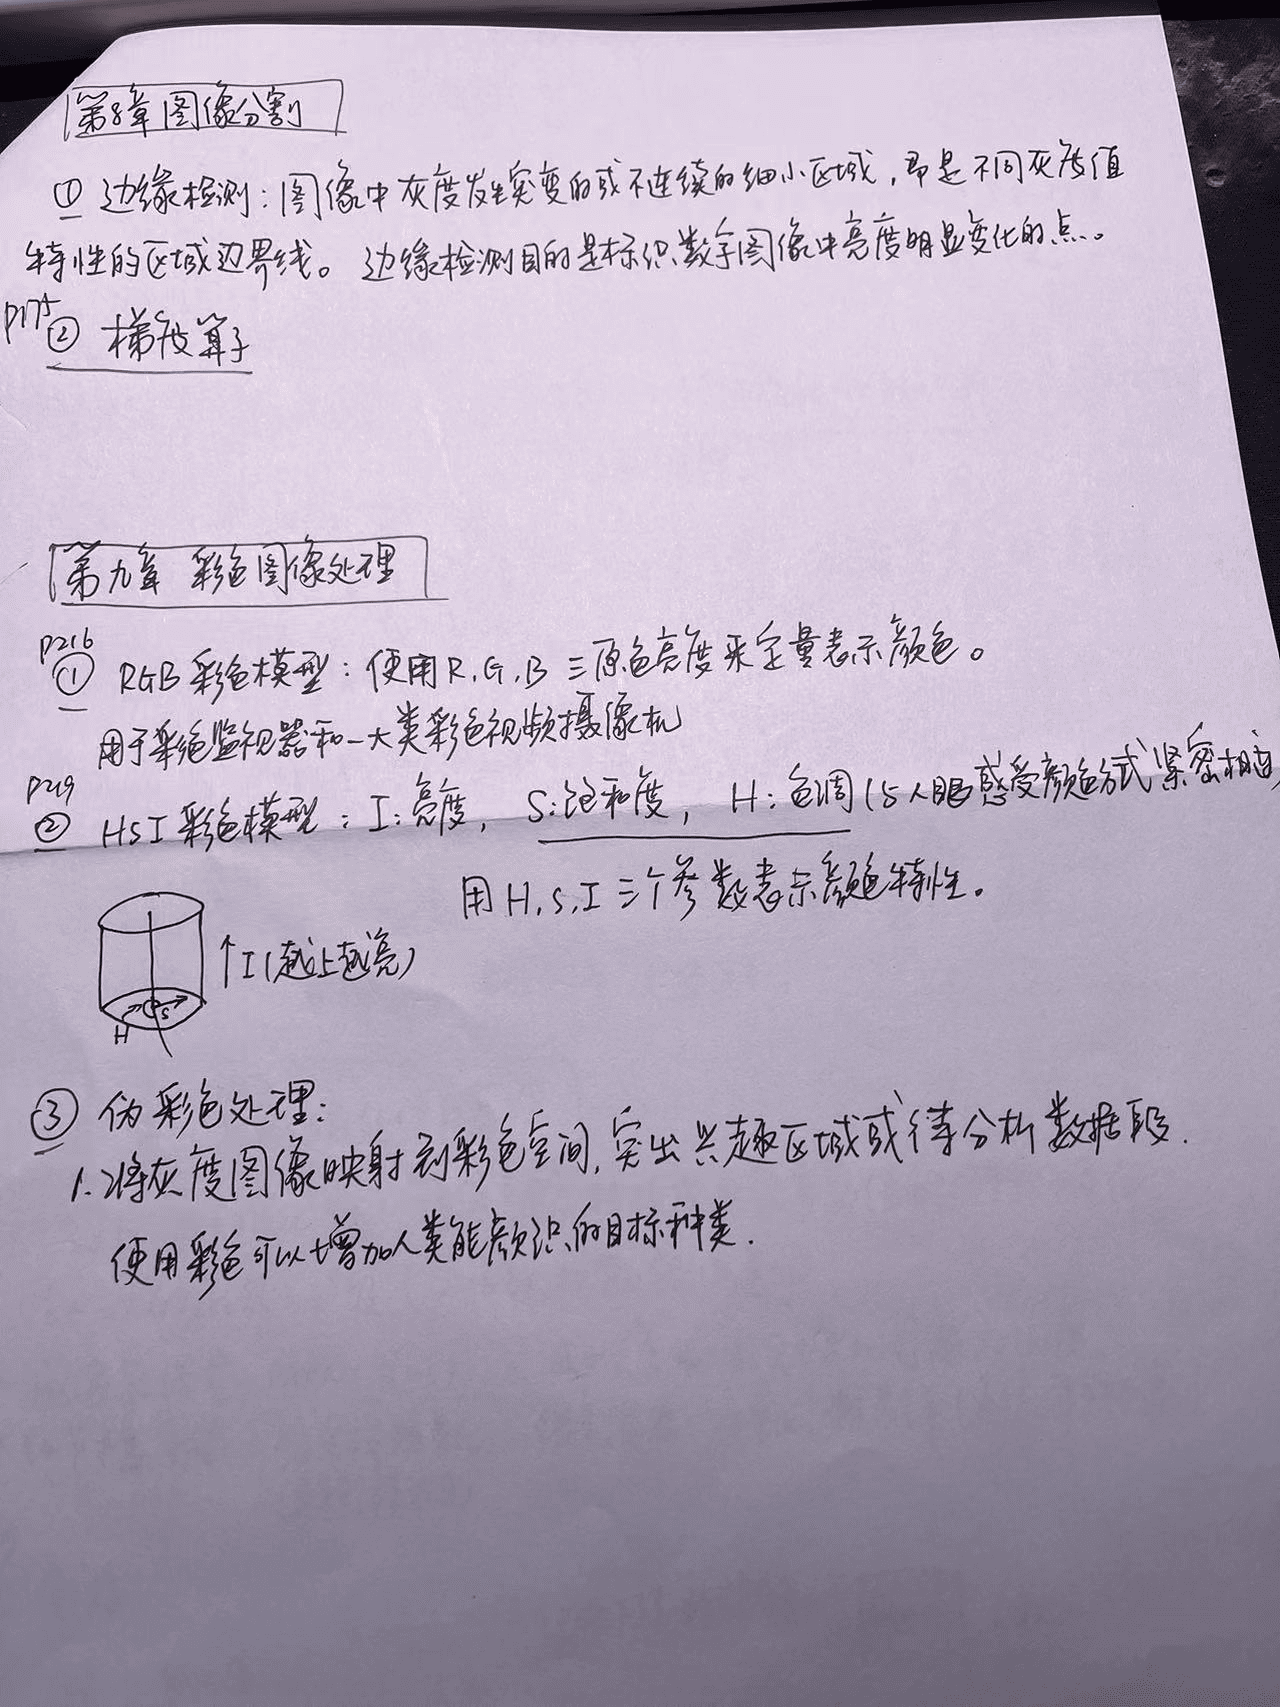 第8章 图像分割
① 边缘检测：图像中灰度发生突变的或不连续的细小区域，即是不同灰度值
特性的区域边界线。边缘检测目的是标识数字图像中亮度明显变化的点。
P175
② 梯度算子
第九章 彩色图像处理
P216
① RGB彩色模型：使用R，G，B三原色亮度来定量表示颜色。
用于彩色监视器和一大类彩色视频摄像机
P219
② HSI彩色模型：I：亮度，S：饱和度，H：色调（与人眼感受颜色方式紧密相连）
用H，S，I三个参数表示颜色特性。
↑I（越上越亮）
H S
③ 伪彩色处理：
1. 将灰度图像映射到彩色空间，突出兴趣区域或待分析数据段.
使用彩色可以增加人类能颜识的目标种类.